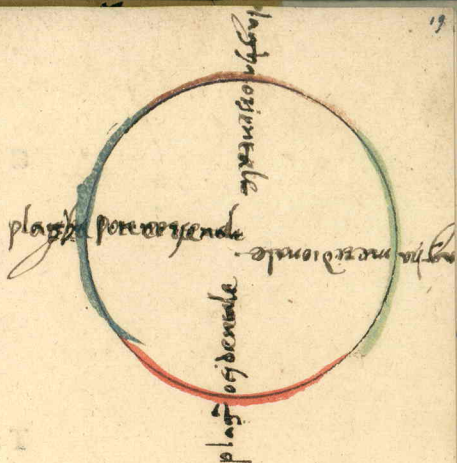 19
plagha orientale
plagha potentrionale
plagha meridionale
plagha ocidentale